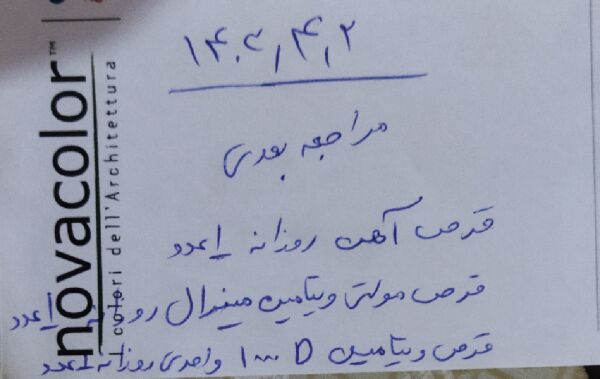 novacolor™
colori dell'Architettura
۱۴۰۲٫۴٫۲
مراجعه بعدی
قرص آهن روزانه ۱عدد
قرص مولتی ویتامین مینرال روزانه ۱عدد
قرص ویتامین D ۱۰۰۰ واحدی روزانه ۱عدد